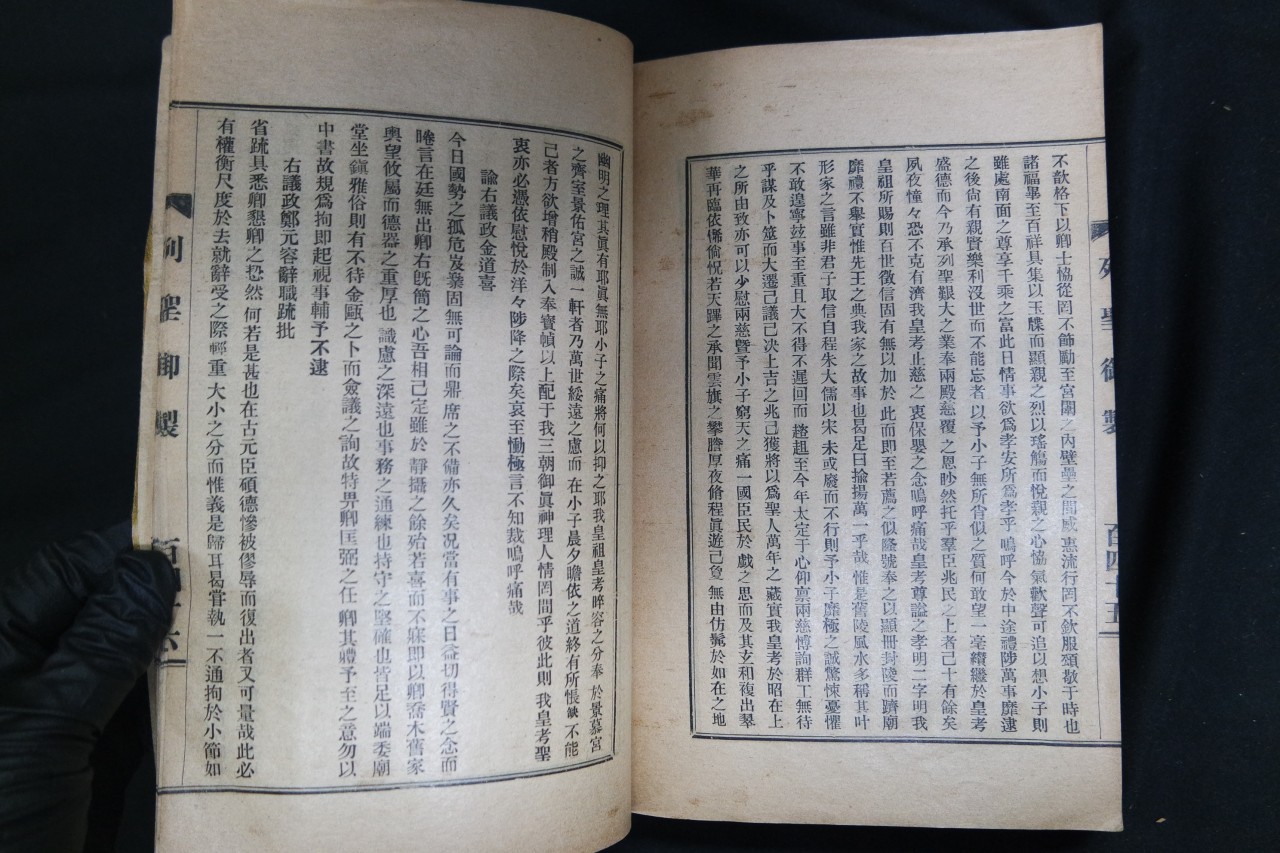 不歆格下以卿士恊從罔不飾勵至宮闈之內壁壘之間威惠流行罔不欽服頌敭于時也
諸福畢至百祥具集以玉牒而顯親之烈以瑤觴而悅親之心恊氣歡聲可追以想小子則
雖處南面之尊享千乘之富此日情事欲爲孝安所爲孝乎嗚呼今於中途禮陟萬事靡逮
之後尙有親賢樂利沒世而不能忘者以予小子無所肯似之質何敢望一毫纘繼於皇考
盛德而今乃承列聖艱大之業奉兩殿慈覆之恩眇然托乎羣臣兆民之上者己十有餘矣
夙夜憧々恐不克有濟我皇考止慈之衷保嬰之念嗚呼痛哉皇考尊謚之孝明二字明我
皇祖所賜則百世徵信固有無以加於此而即至若薦之似隆號奉之以顯冊封陵而躋廟
靡禮不擧實惟先王之典我家之故事也曷足曰揄揚萬一乎哉惟是舊陵風水多稱其叶
形家之言雖非君子取信自程朱大儒以宋未或廢而不行則予小子靡極之誠驚悚憂懼
不敢遑寧玆事至重且大不得不遲回而趦趄至今年太定于心仰禀兩慈博詢群工無待
乎謀及卜筮而大遷己議己决上吉之兆己獲將以爲聖人萬年之藏實我皇考於昭在上
之所由致亦可以少慰兩慈曁予小子窮天之痛一國臣民於戲之思而及其玄和複出翠
華再臨依俙倘怳若天蹕之承聞雲旗之攀瞻厚夜脩程眞遊己夐無由仿髴於如在之地
列聖御製 百四十五
幽明之理其眞有耶眞無耶小子之痛將何以抑之耶我皇祖皇考睟容之分奉於景慕宮
之齊室景佑宮之誠一軒者乃萬世綏遠之慮而在小子晨夕瞻依之道終有所悵缺不能
己者方欲增稍殿制入奉寶幀以上配于我三朝御眞神理人情罔間乎彼此則我皇考聖
衷亦必憑依慰悅於洋々陟降之際矣哀至慟極言不知裁嗚呼痛哉
諭右議政金道喜
今日國勢之孤危岌嶪固無可論而鼎席之不備亦久矣况當有事之日益切得賢之念而
睠言在廷無出卿右旣簡之心吾相己定雖於靜攝之餘殆若喜而不寐即以卿喬木舊家
輿望攸屬而德器之重厚也識慮之深遠也事務之通練也持守之堅確也皆足以端委廟
堂坐鎭雅俗則有不待金甌之卜而僉議之詢故特畀卿匡弼之任卿其體予至之意勿以
中書故規爲拘即起視事輔予不逮
右議政鄭元容辭職䟽批
省䟽具悉卿懇卿之恐然何若是甚也在古元臣碩德慘被僇辱而復出者又可量哉此必
有權衡尺度於去就辭受之際輕重大小之分而惟義是歸耳曷甞執一不通拘於小節如
列聖御製 百四十六